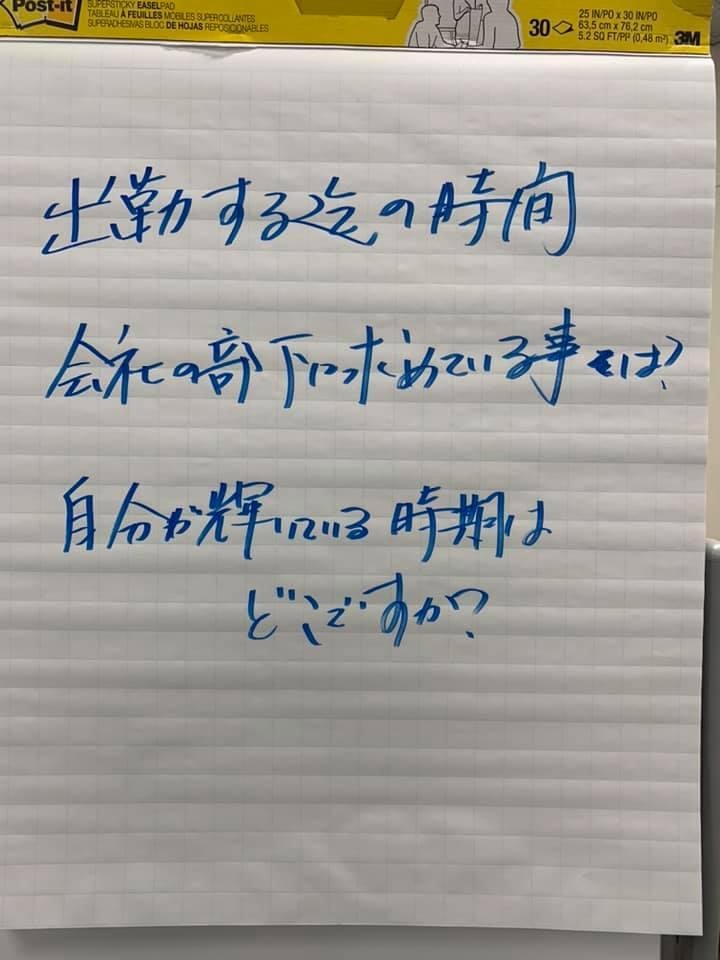 Post-it
SUPERSTICKY EASEL PAD
TABLEAU À FEUILLES MOBILES SUPERCOLLANTES
SUPERADHESIVAS BLOC DE HOJAS REPOSICIONABLES
30
25 IN/PO x 30 IN/PO
63,5 cm x 76,2 cm
5.2 SQ FT/PI² (0,48 m²)
3M
出勤する迄の時間
会社の部下に求めている事とは?
自分が輝いている時期は
どこですか?